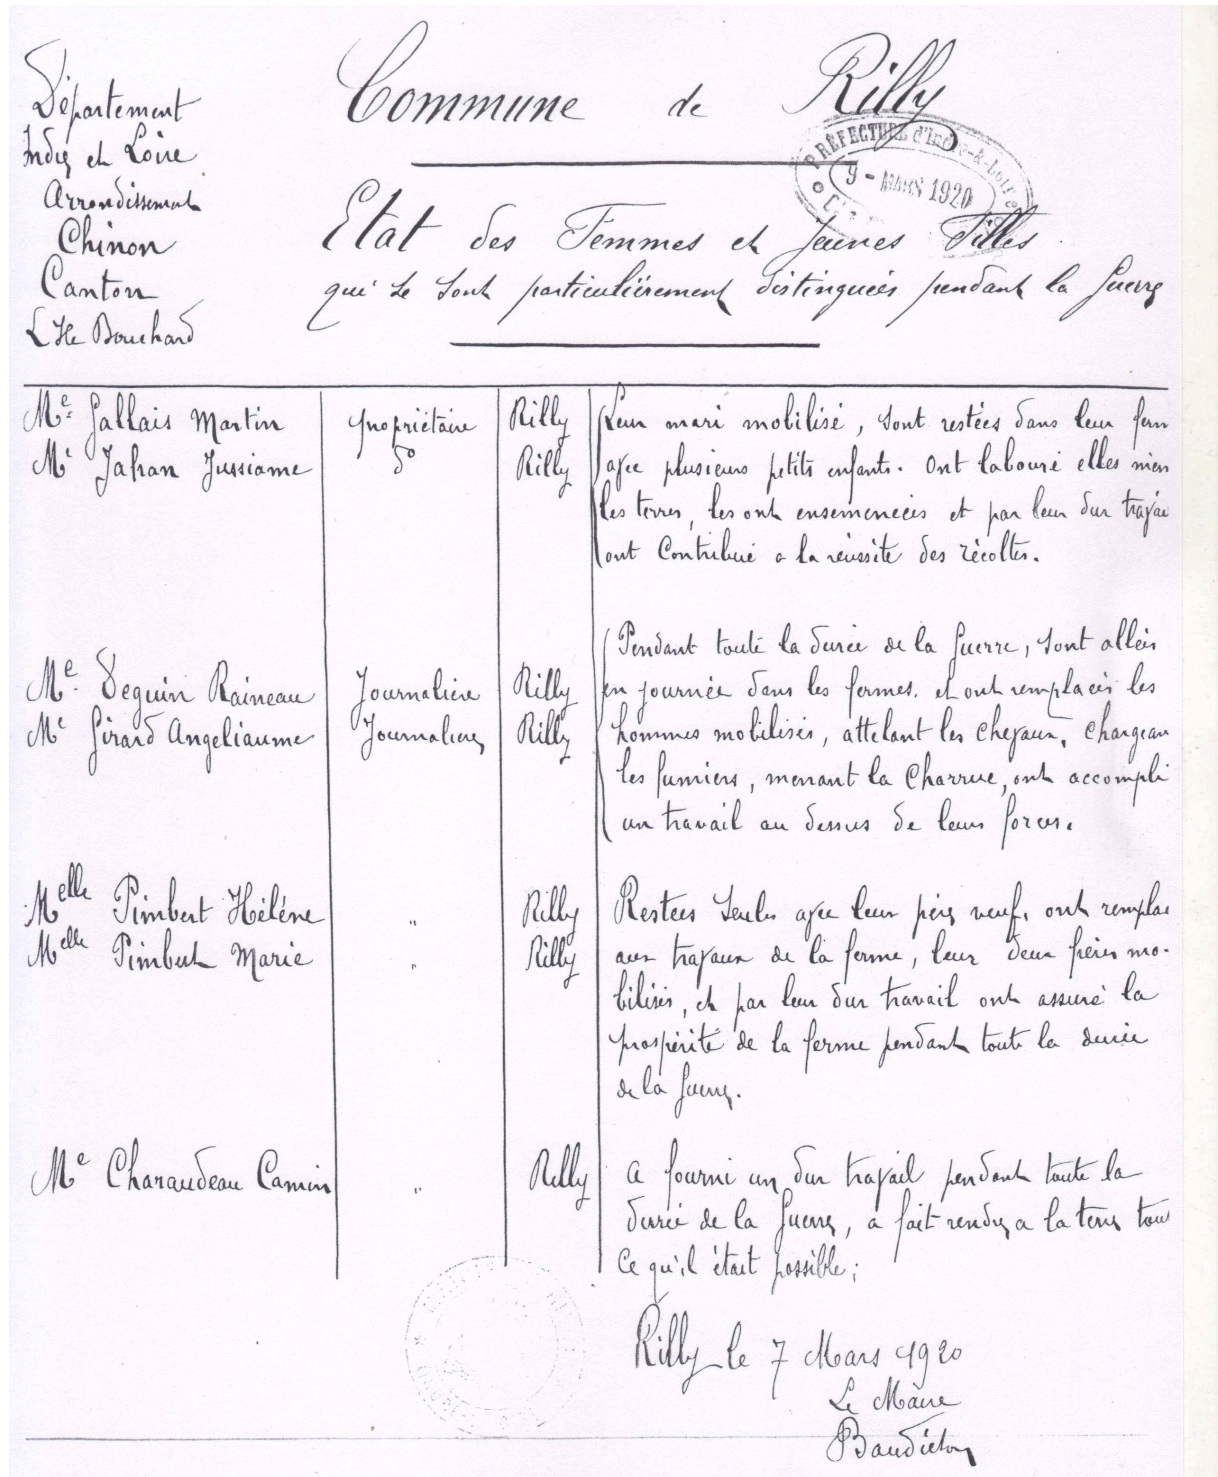 Département
Indre et Loire
Arrondissement
Chinon
Canton
L'Ile Bouchard
Commune de Rilly
PRÉFECTURE d'Indre-&-Loire
9 - MARS 1920
Etat des Femmes et Jeunes Filles
qui se sont particulièrement distinguées pendant la Guerre
Me Gallais Martin propriétaire Rilly
Me Jahan Jussiome do Rilly
Leur mari mobilisé, sont restées dans leur ferm
avec plusieurs petits enfants. Ont labouré elles mêm
les terres, les ont ensemencées et par leur dur travai
ont contribué a la réussite des récoltes.
Me Deguin Raineau Journalière Rilly
Me Girard Angeliaume Journalière Rilly
Pendant toute la durée de la Guerre, sont allées
en journée dans les fermes. et ont remplacés les
hommes mobilisés, attelant les chevaux, chargean
les fumiers, menant la charrue, ont accompli
un travail au dessus de leurs forces.
Melle Pimbert Hélène " Rilly
Melle Pimbert Marie " Rilly
Restées seules avec leur père veuf, ont remplac
aux travaux de la ferme, leur deux frères mo-
bilisés, et par leur dur travail ont assuré la
prospérité de la ferme pendant toute la durée
de la Guerre.
Me Charaudeau Camin " Rilly
a fourni un dur travail pendant toute la
durée de la Guerre, a fait rendre a la terre tout
ce qu'il était possible;
Rilly le 7 Mars 1920
Le Maire